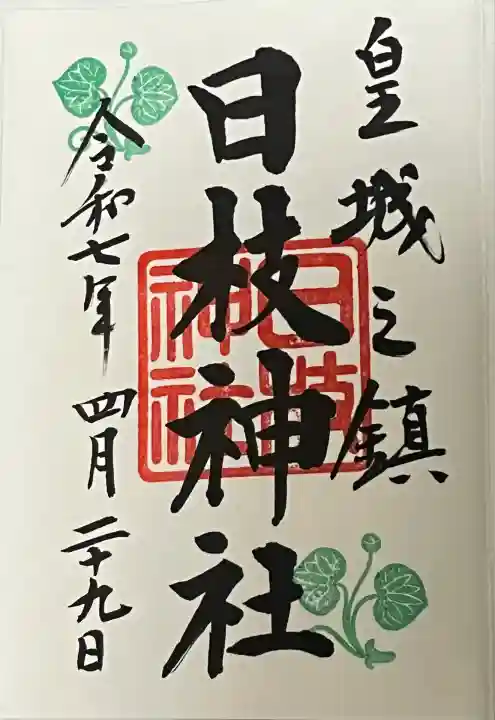 皇城之鎮
日枝神社
日枝神社
令和七年 四月二十九日